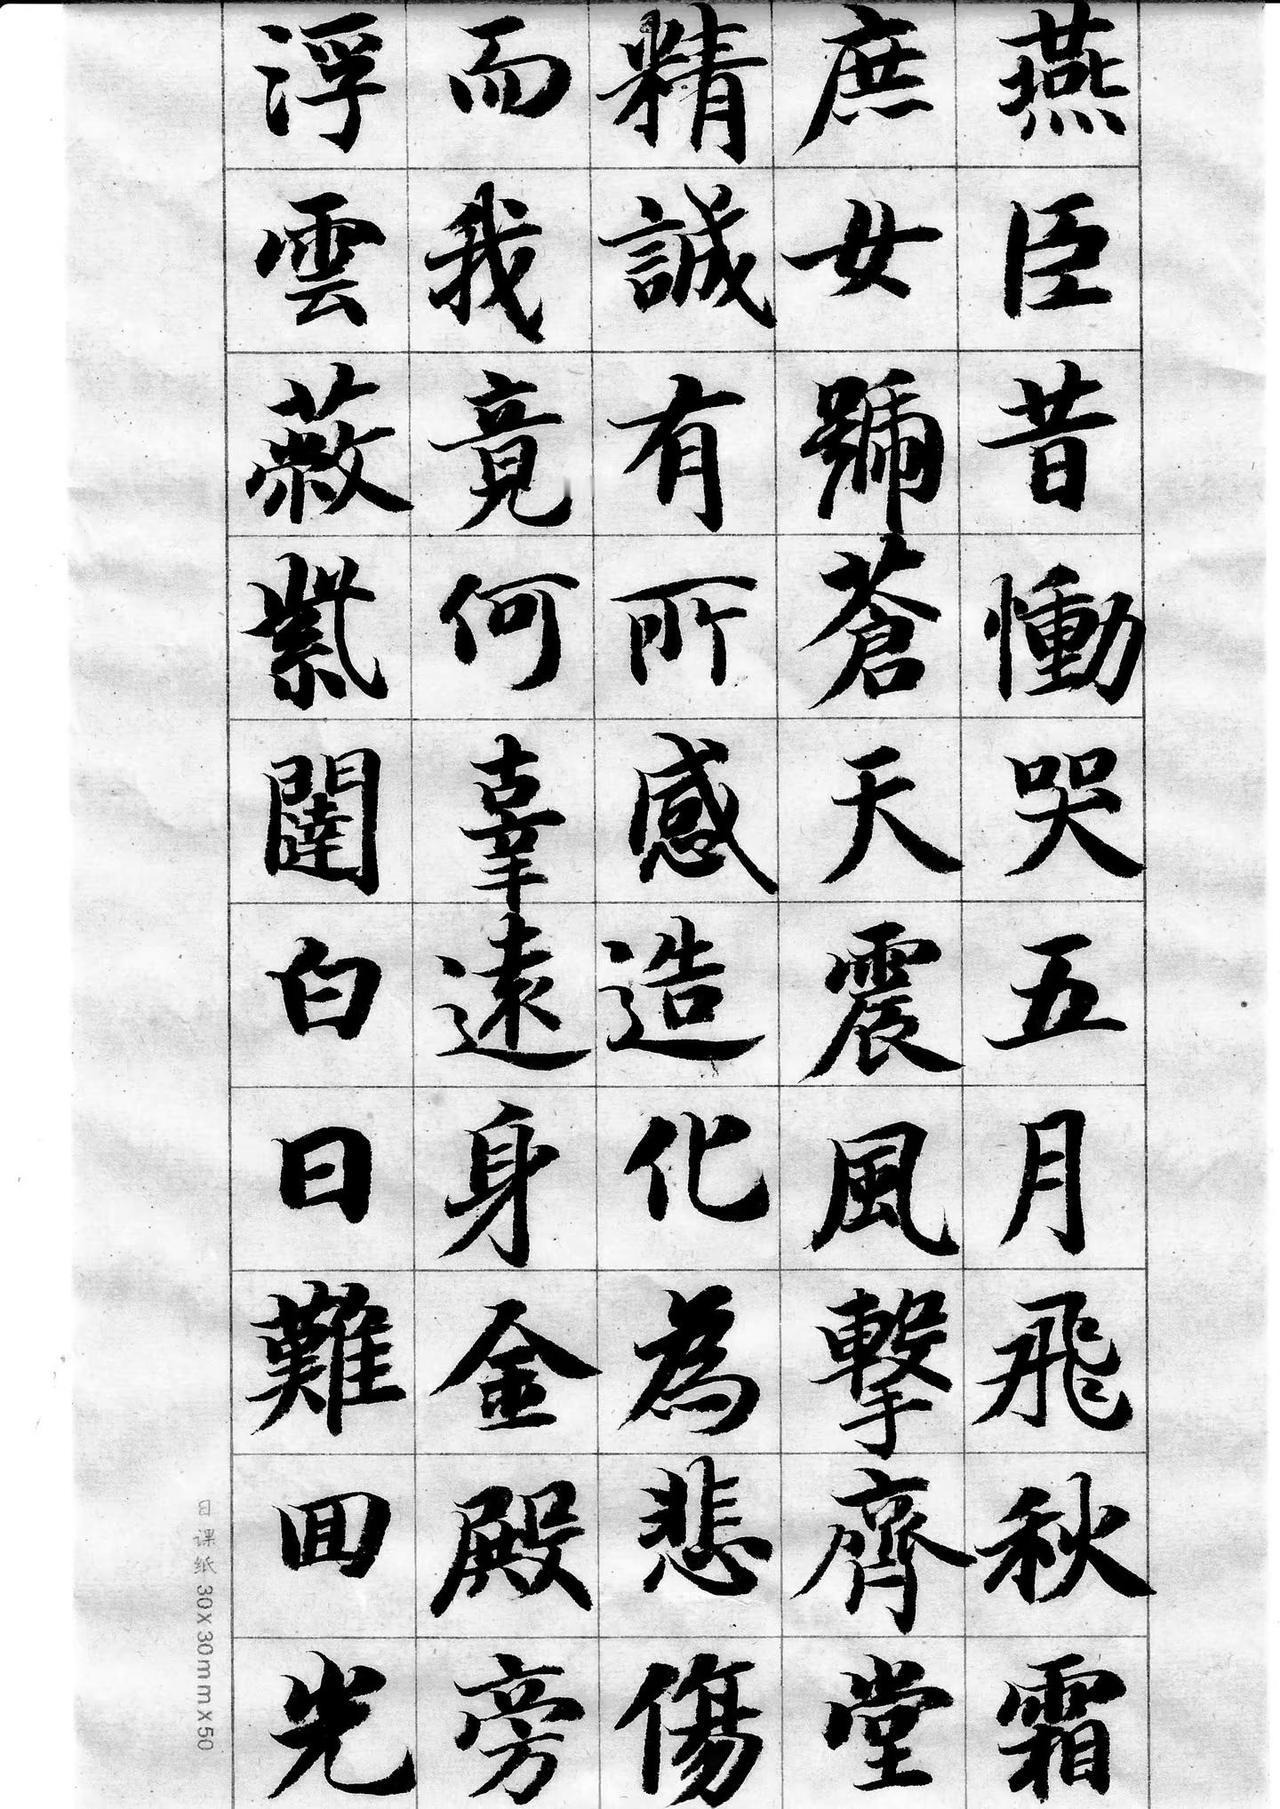 燕臣昔慟哭五月飛秋霜
庶女號蒼天震風擊齊堂
精誠有所感造化為悲傷
而我竟何辜遠身金殿旁
浮雲蔽紫闥白日難回光
日课纸 30x30mmx50